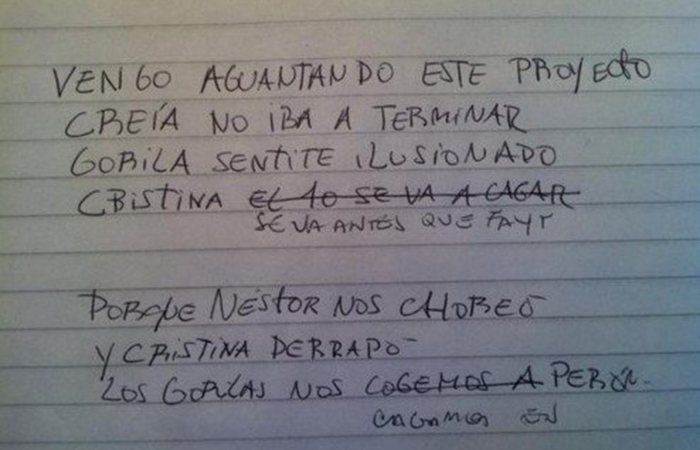 VENGO AGUANTANDO ESTE PROYECTO
CREÍA NO IBA A TERMINAR
GORILA SENTITE ILUSIONADO
CRISTINA EL 10 SE VA A CAGAR
SE VA ANTES QUE FAYT
PORQUE NÉSTOR NOS CHOREÓ
Y CRISTINA DERRAPÓ
LOS GORILAS NOS COGEMOS A PERÓN.
CAGAMOS EN